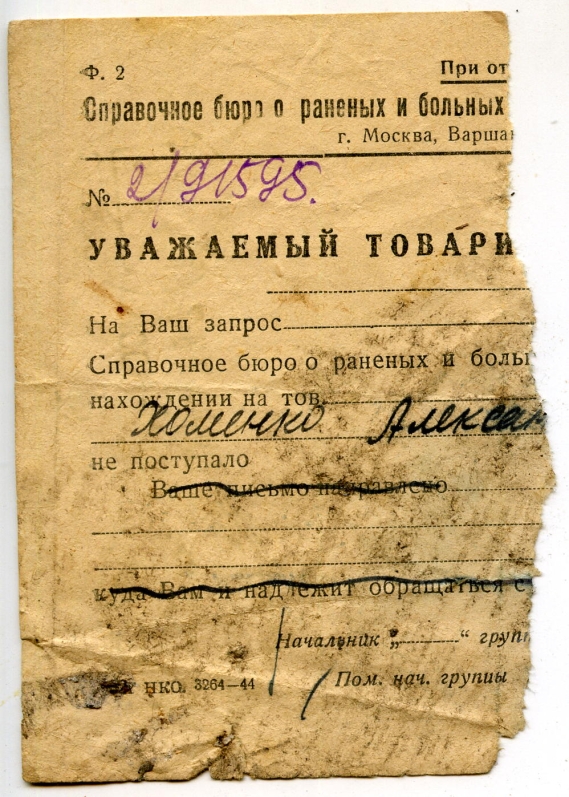 Ф. 2
При от
Справочное бюро о раненых и больных
г. Москва, Варшав
№ 2/91595.
УВАЖАЕМЫЙ ТОВАРИ
На Ваш запрос
Справочное бюро о раненых и боль
нахождении на тов.
Хоменко Алексан
не поступало
Ваше письмо направлено
куда Вам и надлежит обращаться с
Начальник „ “ груп
НКО. 3264—44
Пом. нач. группы